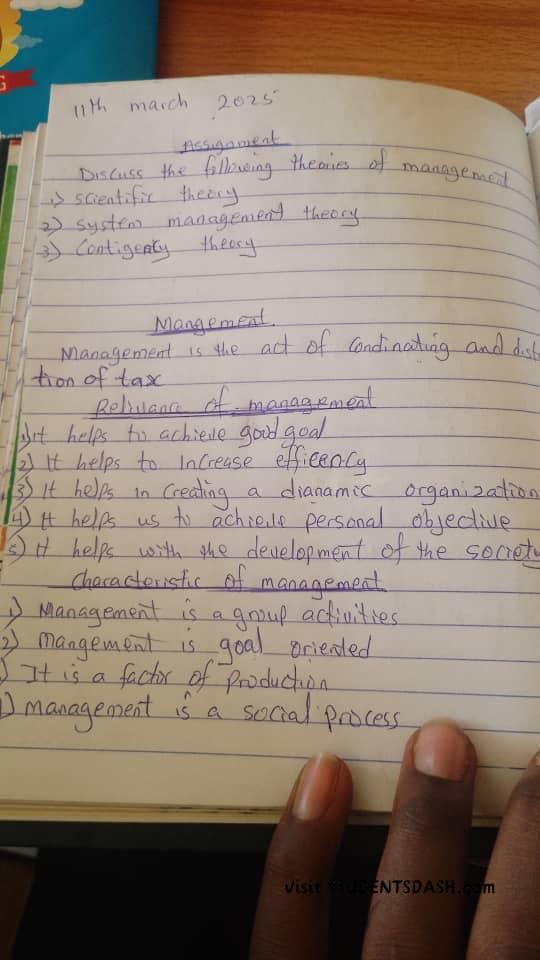 11th march 2025
Assignment
Discuss the following theories of management
1) scientific theory
2) system management theory
3) Contigenty theory
Mangement
Management is the act of Condinating and dist
tion of tax
Relivance of management
1) It helps to achieve good goal
2) It helps to Increase efficency
3) It helps in Creating a dianamic organization
4) It helps us to achieve personal objective
5) It helps with the development of the society
Characteristic of management
1) Management is a group activities
2) mangement is goal oriented
) It is a factor of production
) management is a social process
visit STUDENTSDASH.com